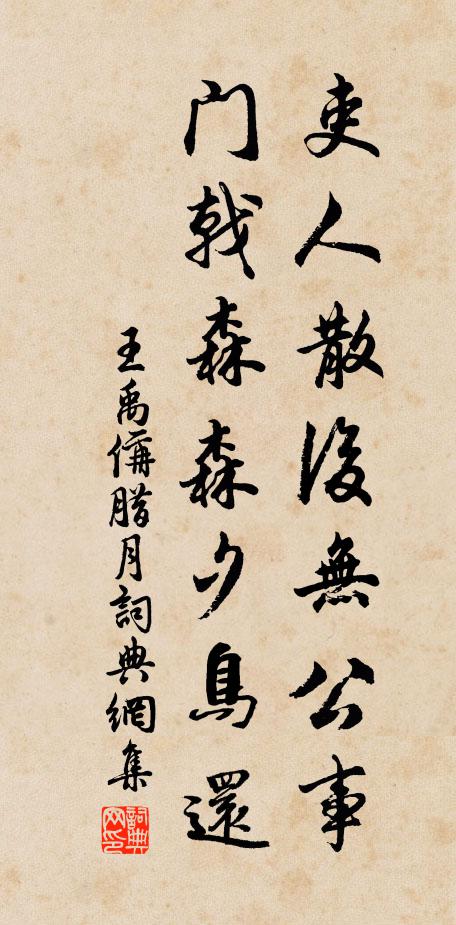 吏人散後無公事
門戟森森夕鳥還
王禹偁腊月詞典網集
詞典网印